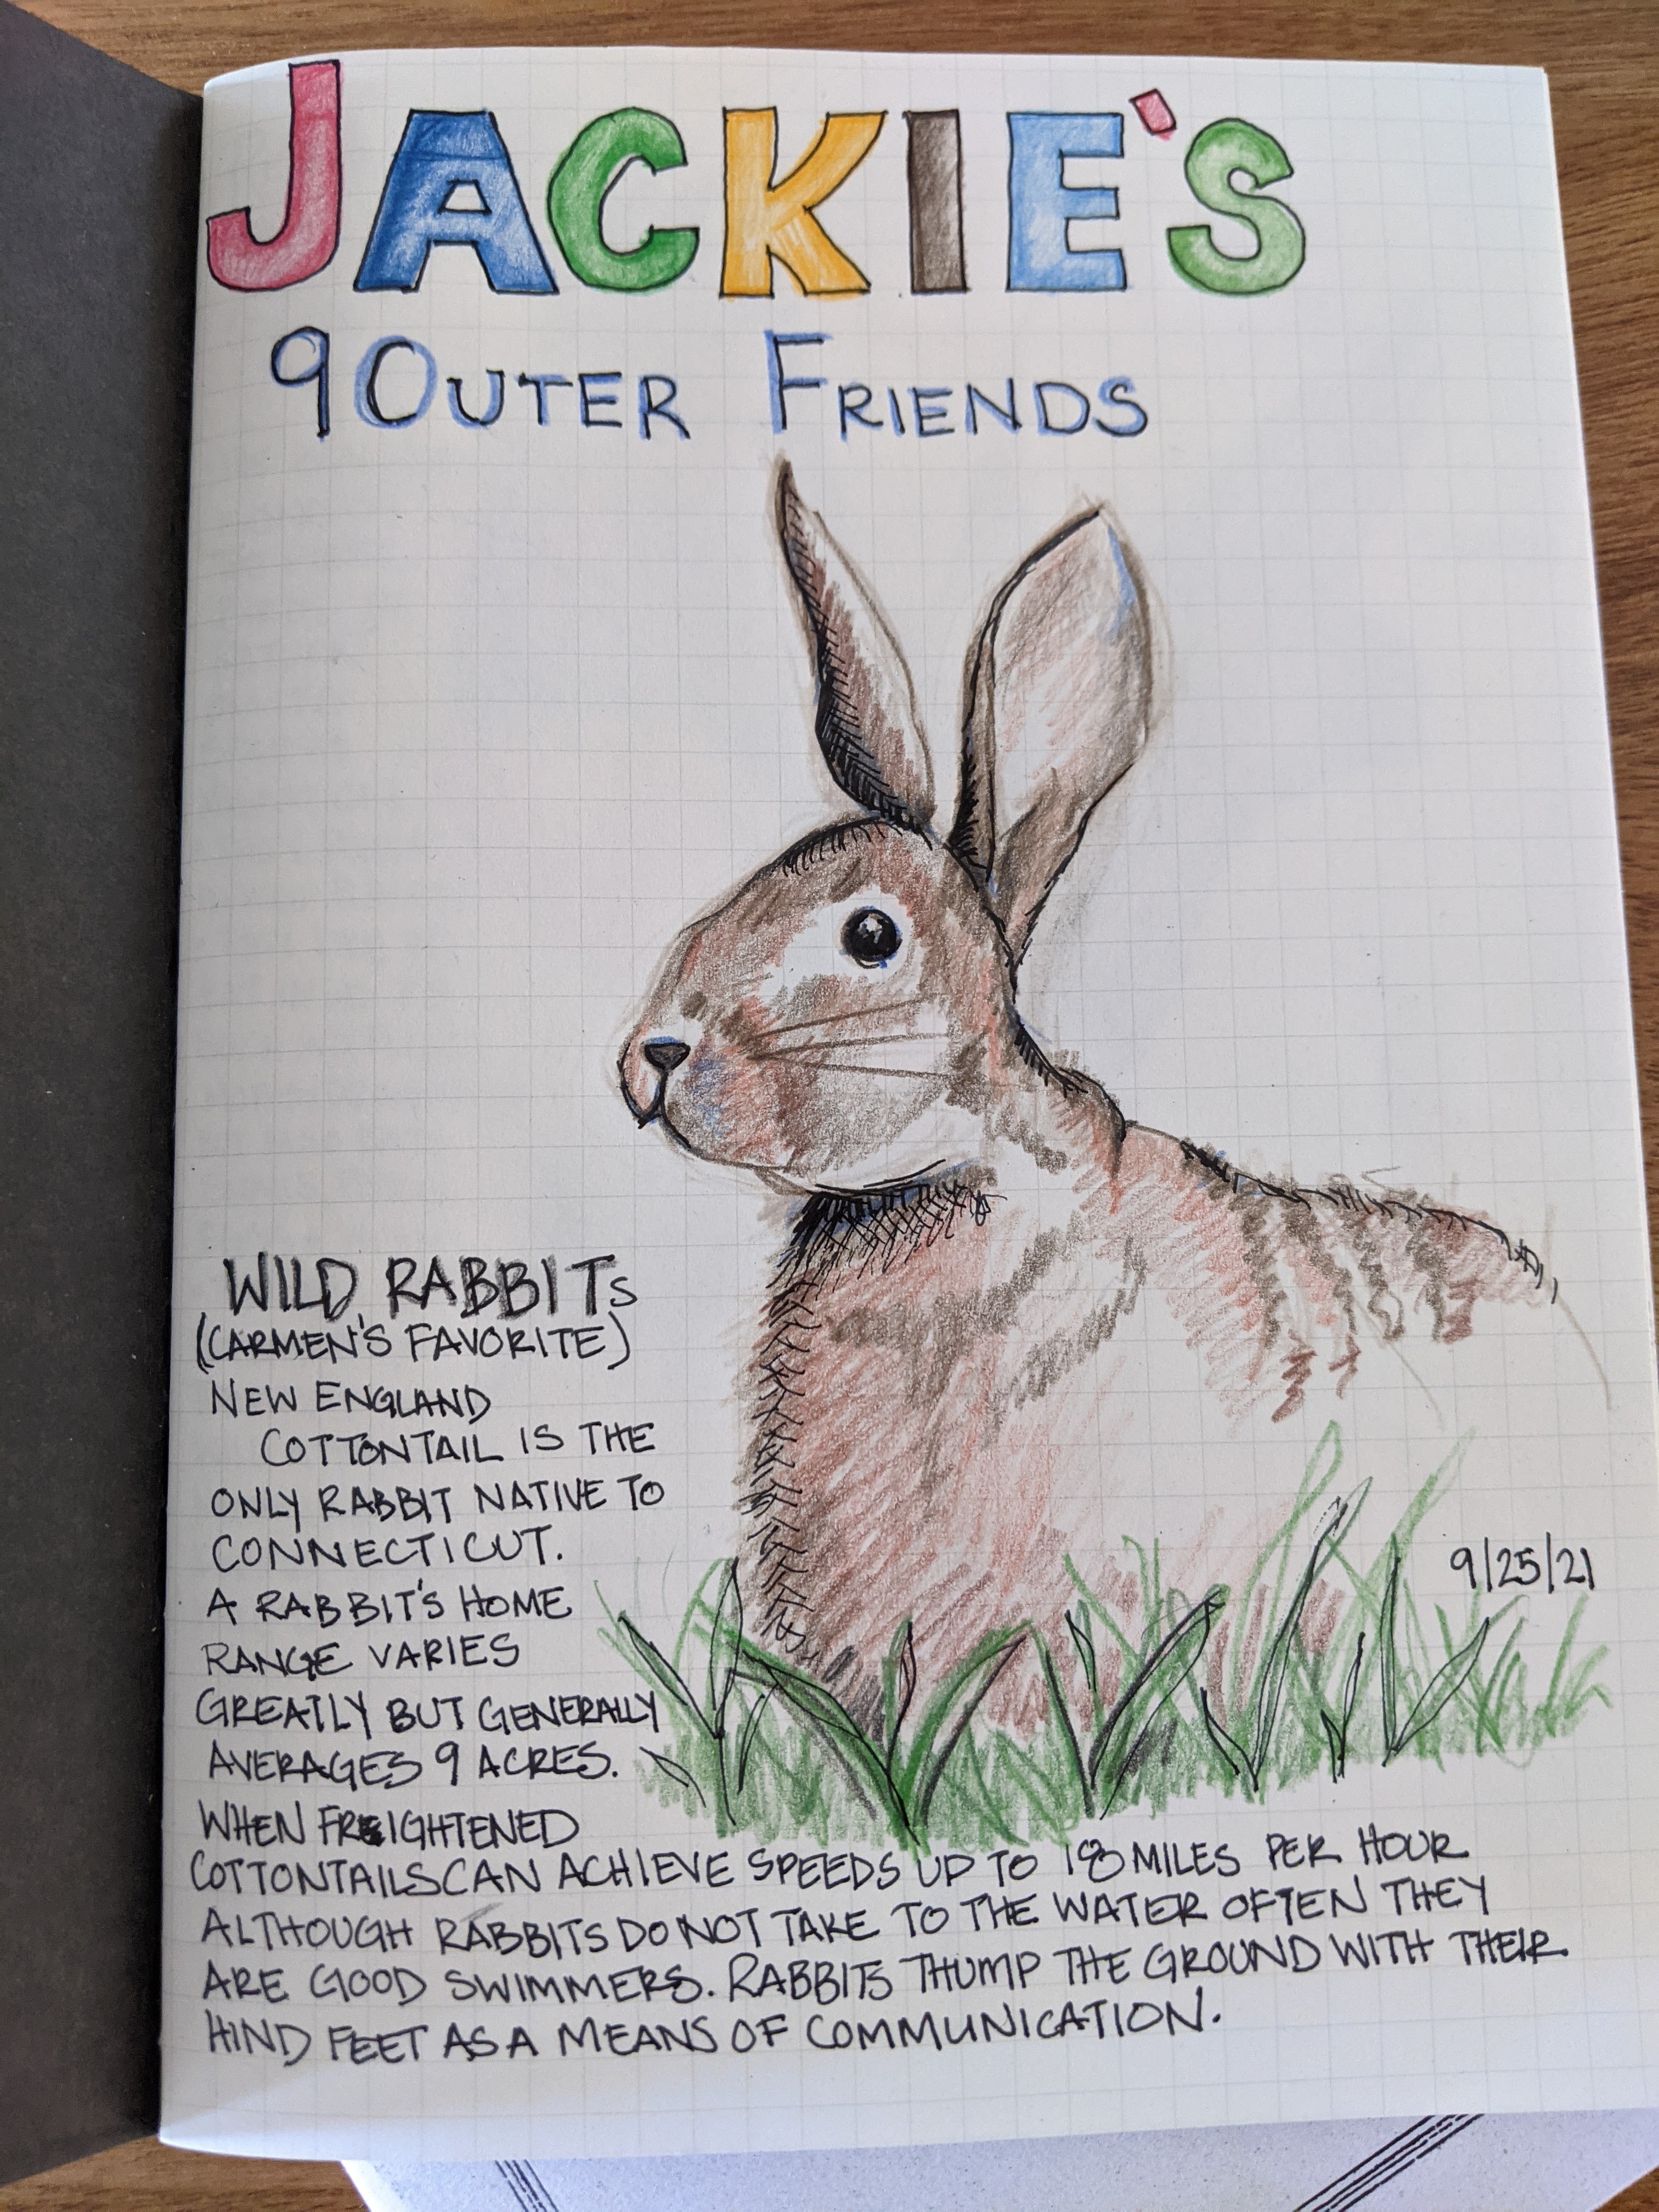 JACKIE'S
9 OUTER FRIENDS
WILD RABBITS
(CARMEN'S FAVORITE)
NEW ENGLAND
COTTONTAIL IS THE
ONLY RABBIT NATIVE TO
CONNECTICUT.
A RABBIT'S HOME
RANGE VARIES
GREATLY BUT GENERALLY
AVERAGES 9 ACRES.
WHEN FREIGHTENED
COTTONTAILS CAN ACHIEVE SPEEDS UP TO 18 MILES PER HOUR
ALTHOUGH RABBITS DO NOT TAKE TO THE WATER OFTEN THEY
ARE GOOD SWIMMERS. RABBITS THUMP THE GROUND WITH THEIR
HIND FEET AS A MEANS OF COMMUNICATION.
9/25/21